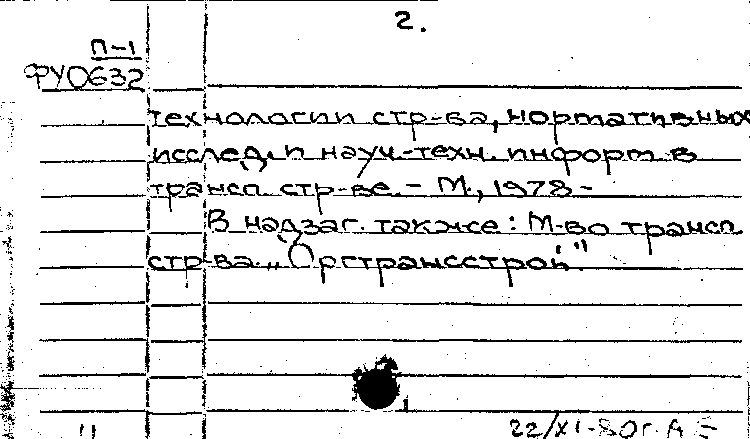 2.
П-1
ФУ0632
технологии стр-ва, нормативных
исслед. и науч.-техн. информ. в
трансп. стр-ве. - М., 1978 -
В надзаг. также: М-во трансп.
стр-ва. „Оргтрансстрой"
22/XI-80г.